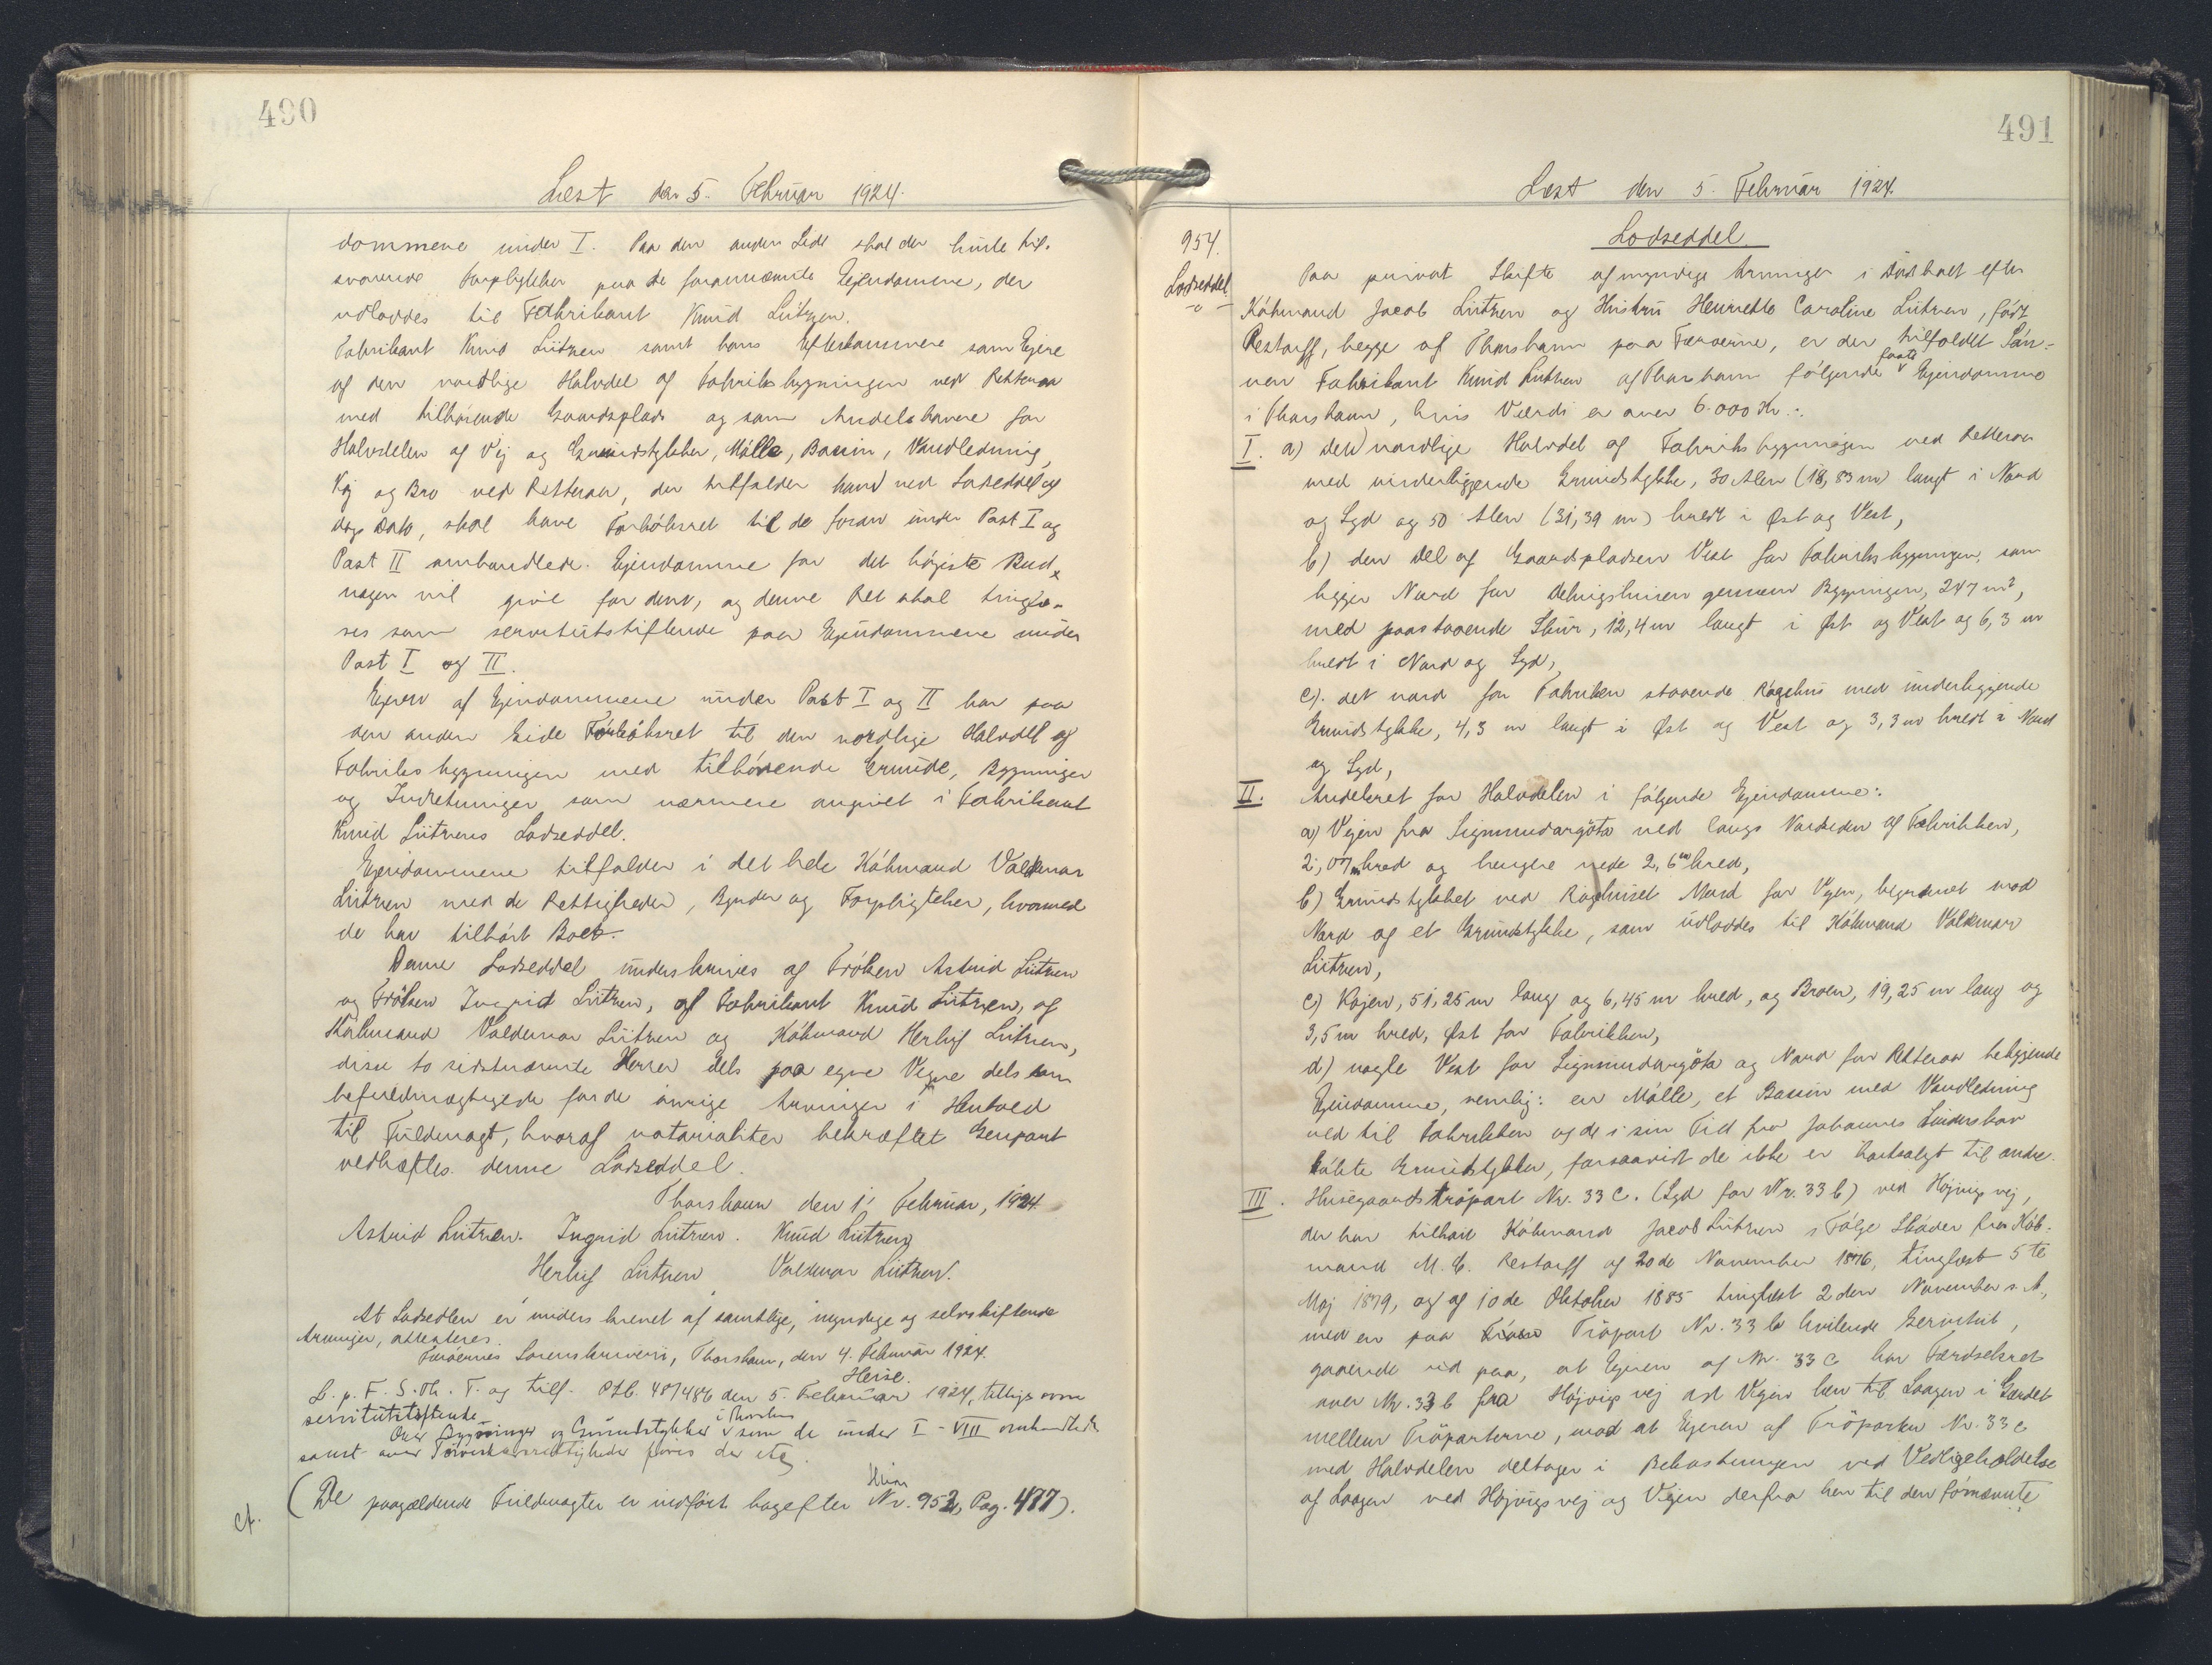 490
Læst den 5. Februar 1924.
dommene under I. Paa den anden Side skal der hvile til-
svarende Forpligtelser paa de forannævnte Ejendomme, der
udloddes til Fabrikant Knud Lützen.
Fabrikant Knud Lützen samt hans Efterkommere som Ejere
af den nordlige Halvdel af Fabriksbygningen ved Rettaraa
med tilhørende Gaardsplads og som Andelshavere for
Halvdelen af Vej og Grundstykker, Mølle, Bassin, Vandledning,
Kaj og Bro ved Rettaraa, der tilfalder ham ved Lodseddel af
dags Dato, skal have Forkøbsret til de foran under Post I og
Post II omhandlede Ejendomme for det højeste Bud,
nogen vil give for dem, og denne Ret skal tinglæ-
ses som servitutstiftende paa Ejendommene under
Post I og II.
Ejeren af Ejendommene under Post I og II har paa
den anden Side Forkøbsret til den nordlige Halvdel af
Fabriksbygningen med tilhørende Grunde, Bygninger
og Indretninger som nærmere angivet i Fabrikant
Knud Lützens Lodseddel.
Ejendommene tilfalder i det hele Købmand Valdemar
Lützen med de Rettigheder, Byrder og Forpligtelser, hvormed
de har tilhørt Boet.
Denne Lodseddel underskrives af Frøken Astrid Lützen
og Frøken Ingrid Lützen, af Fabrikant Knud Lützen, af
Købmand Valdemar Lützen og Købmand Herluf Lützen,
disse to sidstnævnte Herrer dels paa egne Vegne dels som
befuldmægtigede for de øvrige Arvinger i Henhold
til Fuldmagt, hvoraf notarialiter bekræftet Genpart
vedhæftes denne Lodseddel.
Thorshavn den 1. Februar, 1924.
Astrid Lützen. Ingrid Lützen. Knud Lützen
Herluf Lützen Valdemar Lützen.
At Lodsedlen er underskrevet af samtlige, myndige og selvskiftende
Arvinger, attesteres.
Færøernes Sorenskriveri, Thorshavn, den 4. Februar 1924.
Heise.
L. p. F. S. Th. T. og tilf. Ptb. 487486 den 5. Februar 1924, tilligemed som
servitutstiftende.
Over Bygninger og Grundstykker i Thorshavn som de under I - VIII omhandlede
samt over Tørveskærrettigheder føres der ej
(De paagældende Fuldmagter er indført bagefter Hvirv Nr. 952, Pag. 477).
cf.
491
Læst den 5. Februar 1924.
954.
Lodseddel.
Lodseddel.
Paa privat Skifte af myndige Arvinger i Dødsboet efter
Købmand Jacob Lützen og Hustru Henriette Caroline Lützen, født
Restorff, begge af Thorshavn paa Færøerne, er der tilfaldet Søn-
nen Fabrikant Knud Lützen af Thorshavn følgende faste Ejendomme
i Thorshavn, hvis Værdi er over 6.000 Kr.:
I. a) den nordlige Halvdel af Fabriksbygningen ved Rettaraa
med underliggende Grundstykke, 30 Alen (18,83 m) langt i Nord
og Syd og 50 Alen (31,39 m) bredt i Øst og Vest,
b) den Del af Gaardspladsen Vest for Fabriksbygningen, som
ligger Nord for Delingslinien gennem Bygningen, 247 m²,
med paastaaende Skur, 12,4 m langt i Øst og Vest og 6,3 m
bredt i Nord og Syd,
c). det nord for Fabriken staaende Røgehus med underliggende
Grundstykke, 4,3 m langt i Øst og Vest og 3,3 m bredt i Nord
og Syd,
II. Andelsret for Halvdelen i følgende Ejendomme:
a) Vejen fra Sigmundargöta ned langs Nordsiden af Fabrikken,
2,07 m bred og længere nede 2,6 m bred,
b) Grundstykket ved Røghuset Nord for Vejen, begrænset mod
Nord og et Grundstykke, som udloddes til Købmand Valdemar
Lützen,
c) Kajen, 51,25 m lang og 6,45 m bred, og Broen, 19,25 m lang og
3,5 m bred, Øst for Fabrikken,
d) nogle Vest for Sigmundargöta og Nord for Rettaraa beliggende
Ejendomme, nemlig: en Mølle, et Bassin med Vandledning
ned til Fabrikken og de i sin Tid fra Johannes Linderskov
købte Grundstykker, forsaavidt de ikke er bortsolgt til andre.
III. Husegaardströpart Nr. 33 c. (Syd for Nr. 33 b) ved Højvigsvej,
der har tilhørt Købmand Jacob Lützen i Følge Skøder fra Køb-
mand M. C. Restorff af 20de November 1876, tinglæst 5te
Maj 1879, og af 10de Oktober 1885 tinglæst 2den November s. A.,
med en paa Tröpart Nr. 33 b hvilende Servitut,
gaaende ud paa, at Ejeren af Nr. 33 c har Færdselsret
over Nr. 33 b fra Højvigsvej ad Vejen hen til Laagen i Gærdet
mellem Tröparterne, mod at Ejeren af Tröparten Nr. 33 c
med Halvdelen deltager i Bekostningen ved Vedligeholdelse
af Laagen ved Højvigsvej og Vejen derfra hen til den førnævnte